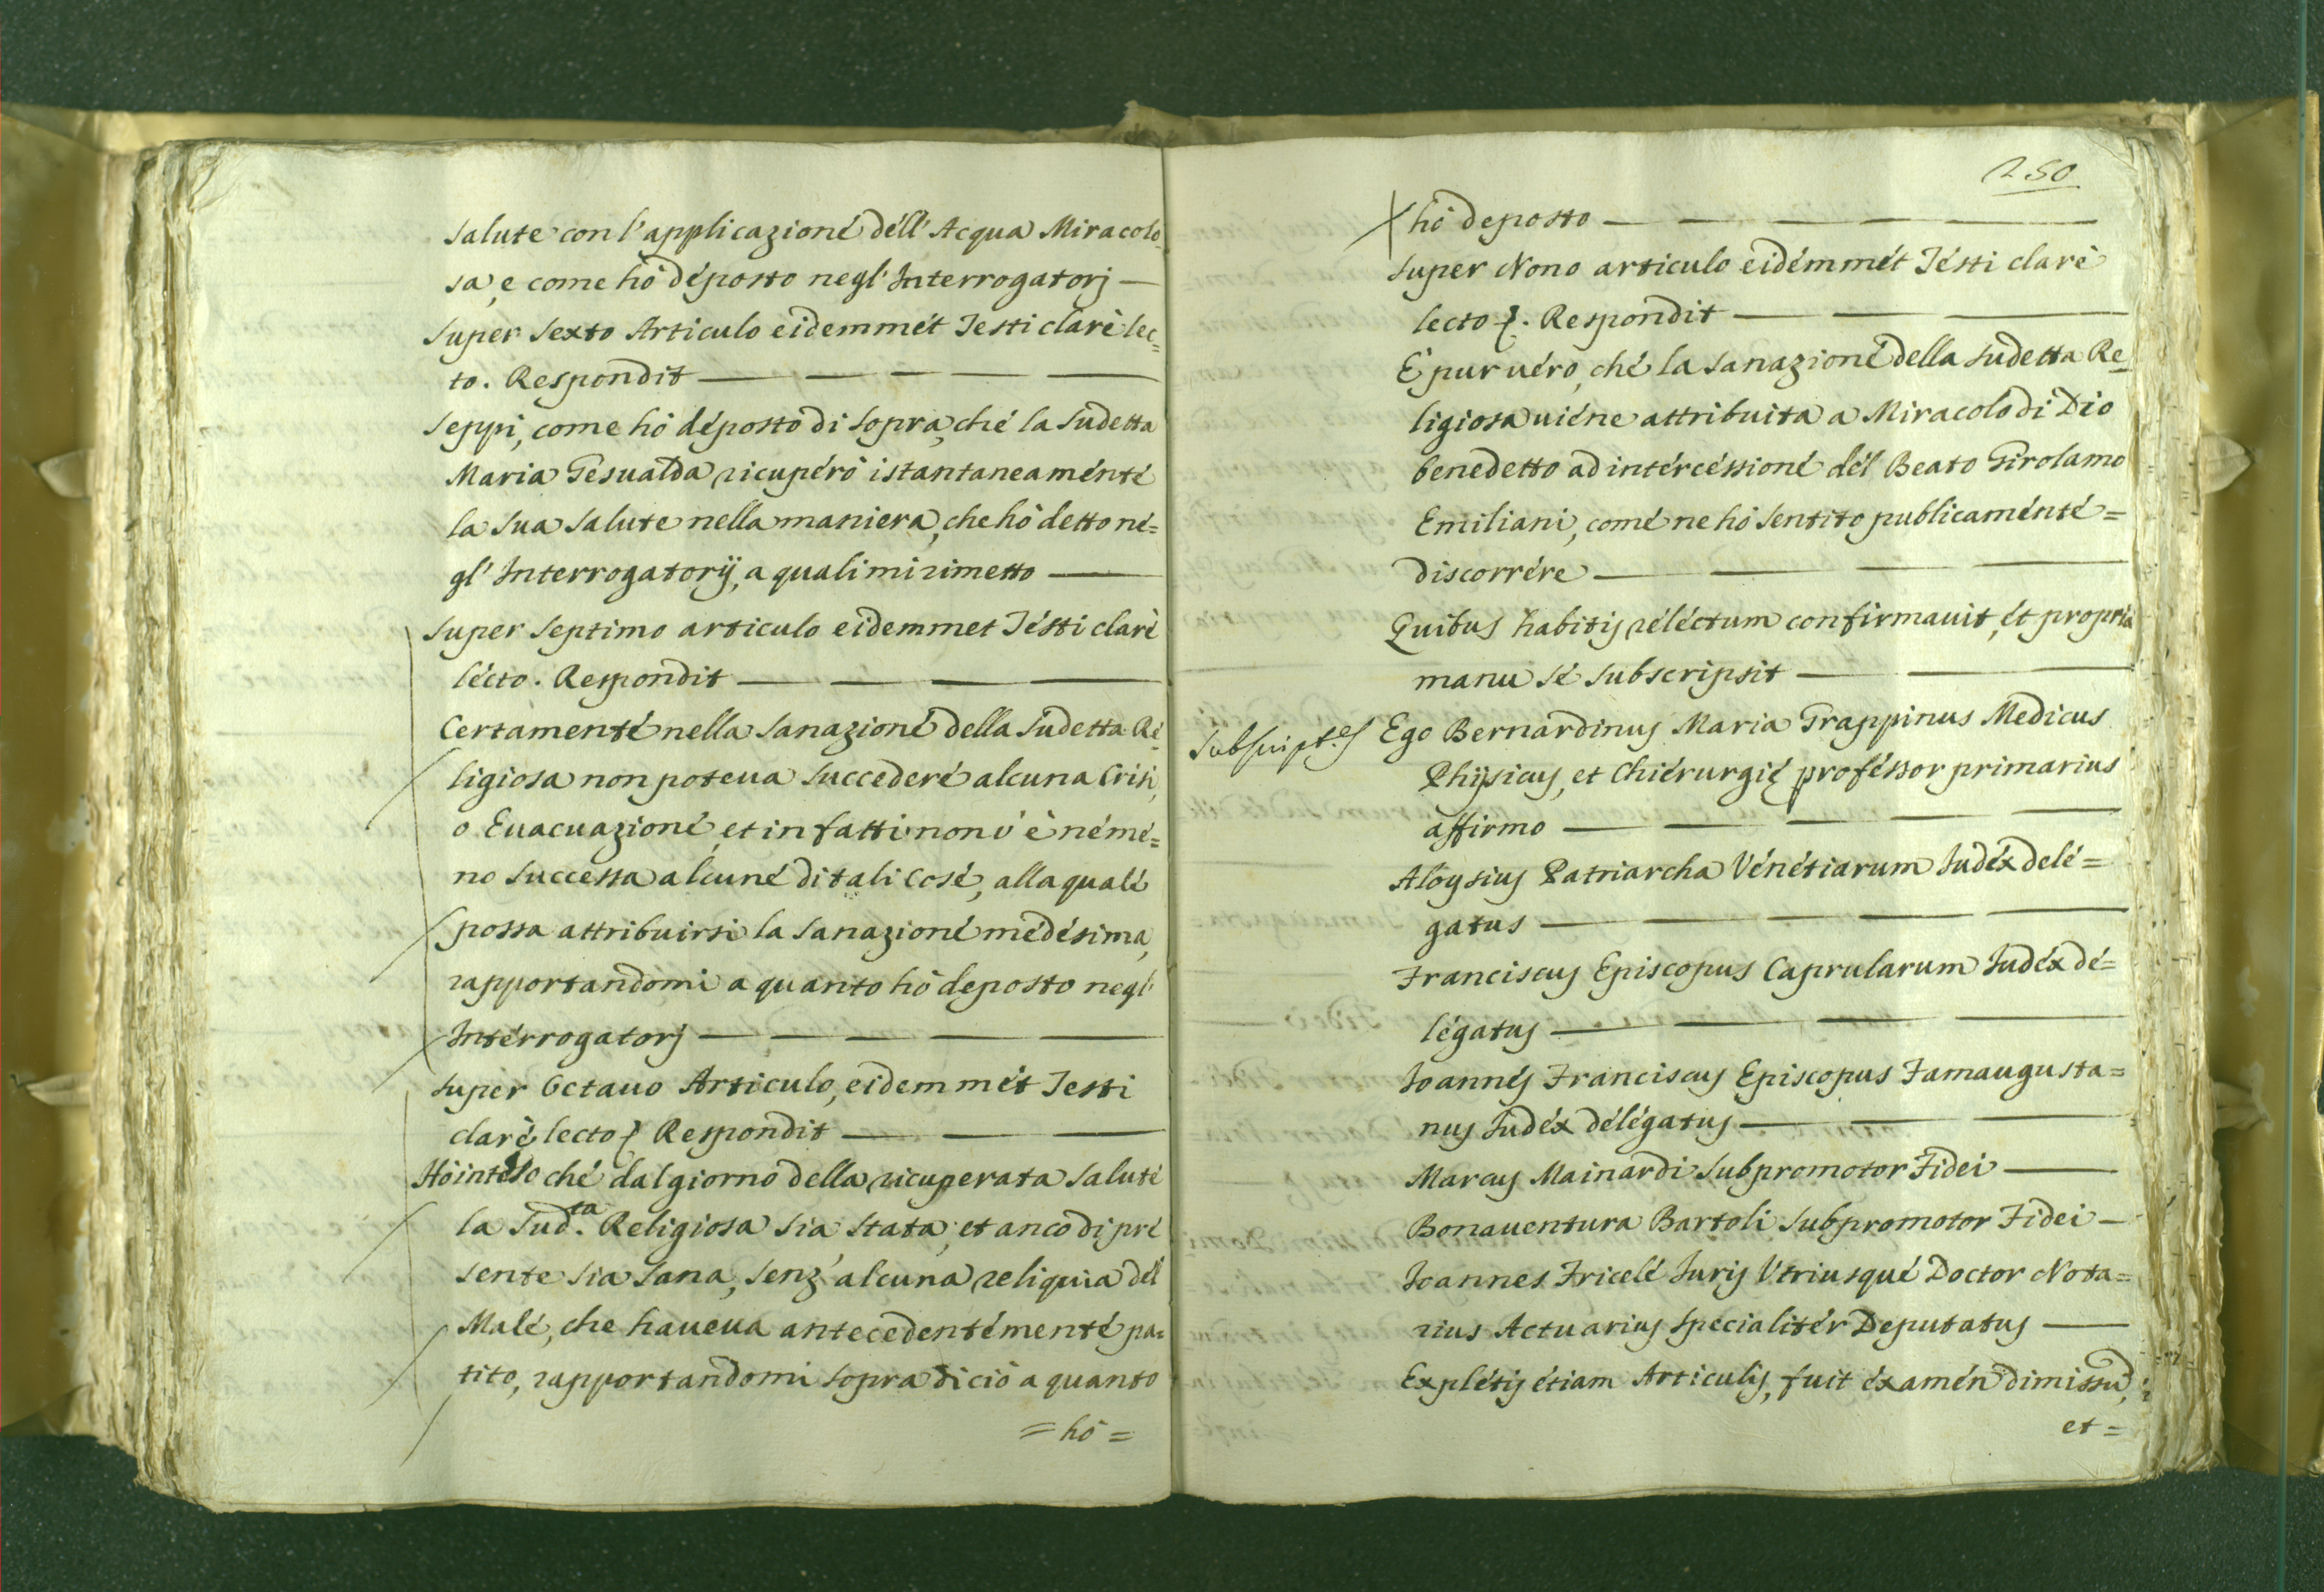 salute con l'applicazioné déll'Acqua Miracolo=
sa, e come hò déposto negl'Interrogatorj —
Super Sexto Articulo eidemmét Testi clarè lec=
to. Respondit —
Seppi, come hò déposto di sopra, ché la sudetta
Maria Gesualda ricupérò istantaneaménté
la sua salute nella maniera, che hò detto né=
gl'Interrogatorij, a quali mi rimetto —
Super septimo articulo eidemmet Tésti clarè
lécto. Respondit —
Certamenté nella sanazioné della sudetta Ré=
ligiosa non poteua succederé alcuna Crisi,
o Euacuazioné, et in fatti non v'è némé=
no successa alcuné di tali cosé, alla qualé
possa attribuirsi la sanazioné médésima,
rapportandomi a quanto hò deposto negl'
Intérrogatorj —
Super Octauo Articulo, eidemmét Testi
clarè lecto &. Respondit —
Hò inteso ché dal giorno della ricuperata saluté
la Sud.ta Religiosa sia stata, et anco di pré
sente sia sana, senz'alcuna reliquia dél
Malé, che haueua antecedentémenté pa=
tito, rapportandomi sopra di ciò a quanto
= hò =
250
hò deposto —
Super Nono articulo eidémmét Tésti clarè
lecto &. Respondit —
È pur uéro, ché la sanazioné della sudetta Re=
ligiosa uiéne attribuita a Miracolo di Dio
benedetto ad intércéssioné dél Beato Girolamo
Emiliani, comé ne hò sentito publicaménté =
discorrére —
Quibus habitis réléctum confirmauit, ét propria
manu sé subscripsit —
Subscript.es
Ego Bernardinus Maria Grappinus Medicus
Phijsicus, et Chiérurgię proféssor primarius
affirmo —
Aloysius Patriarcha Vénétiarum Iudéx delé=
gatus —
Franciscus Episcopus Caprularum Iudéx dé=
légatus —
Ioannés Franciscus Episcopus Famaugusta=
nus Iudéx délégatus —
Marcus Mainardi Subpromotor Fidei —
Bonauentura Bartoli Subpromotor Fidei —
Ioannes Fricelé Iuris Vtriusqué Doctor Nota=
rius Actuarius specialitér Deputatus —
Explétis étiam Articulis, fuit éxamén dimissũ,
et =